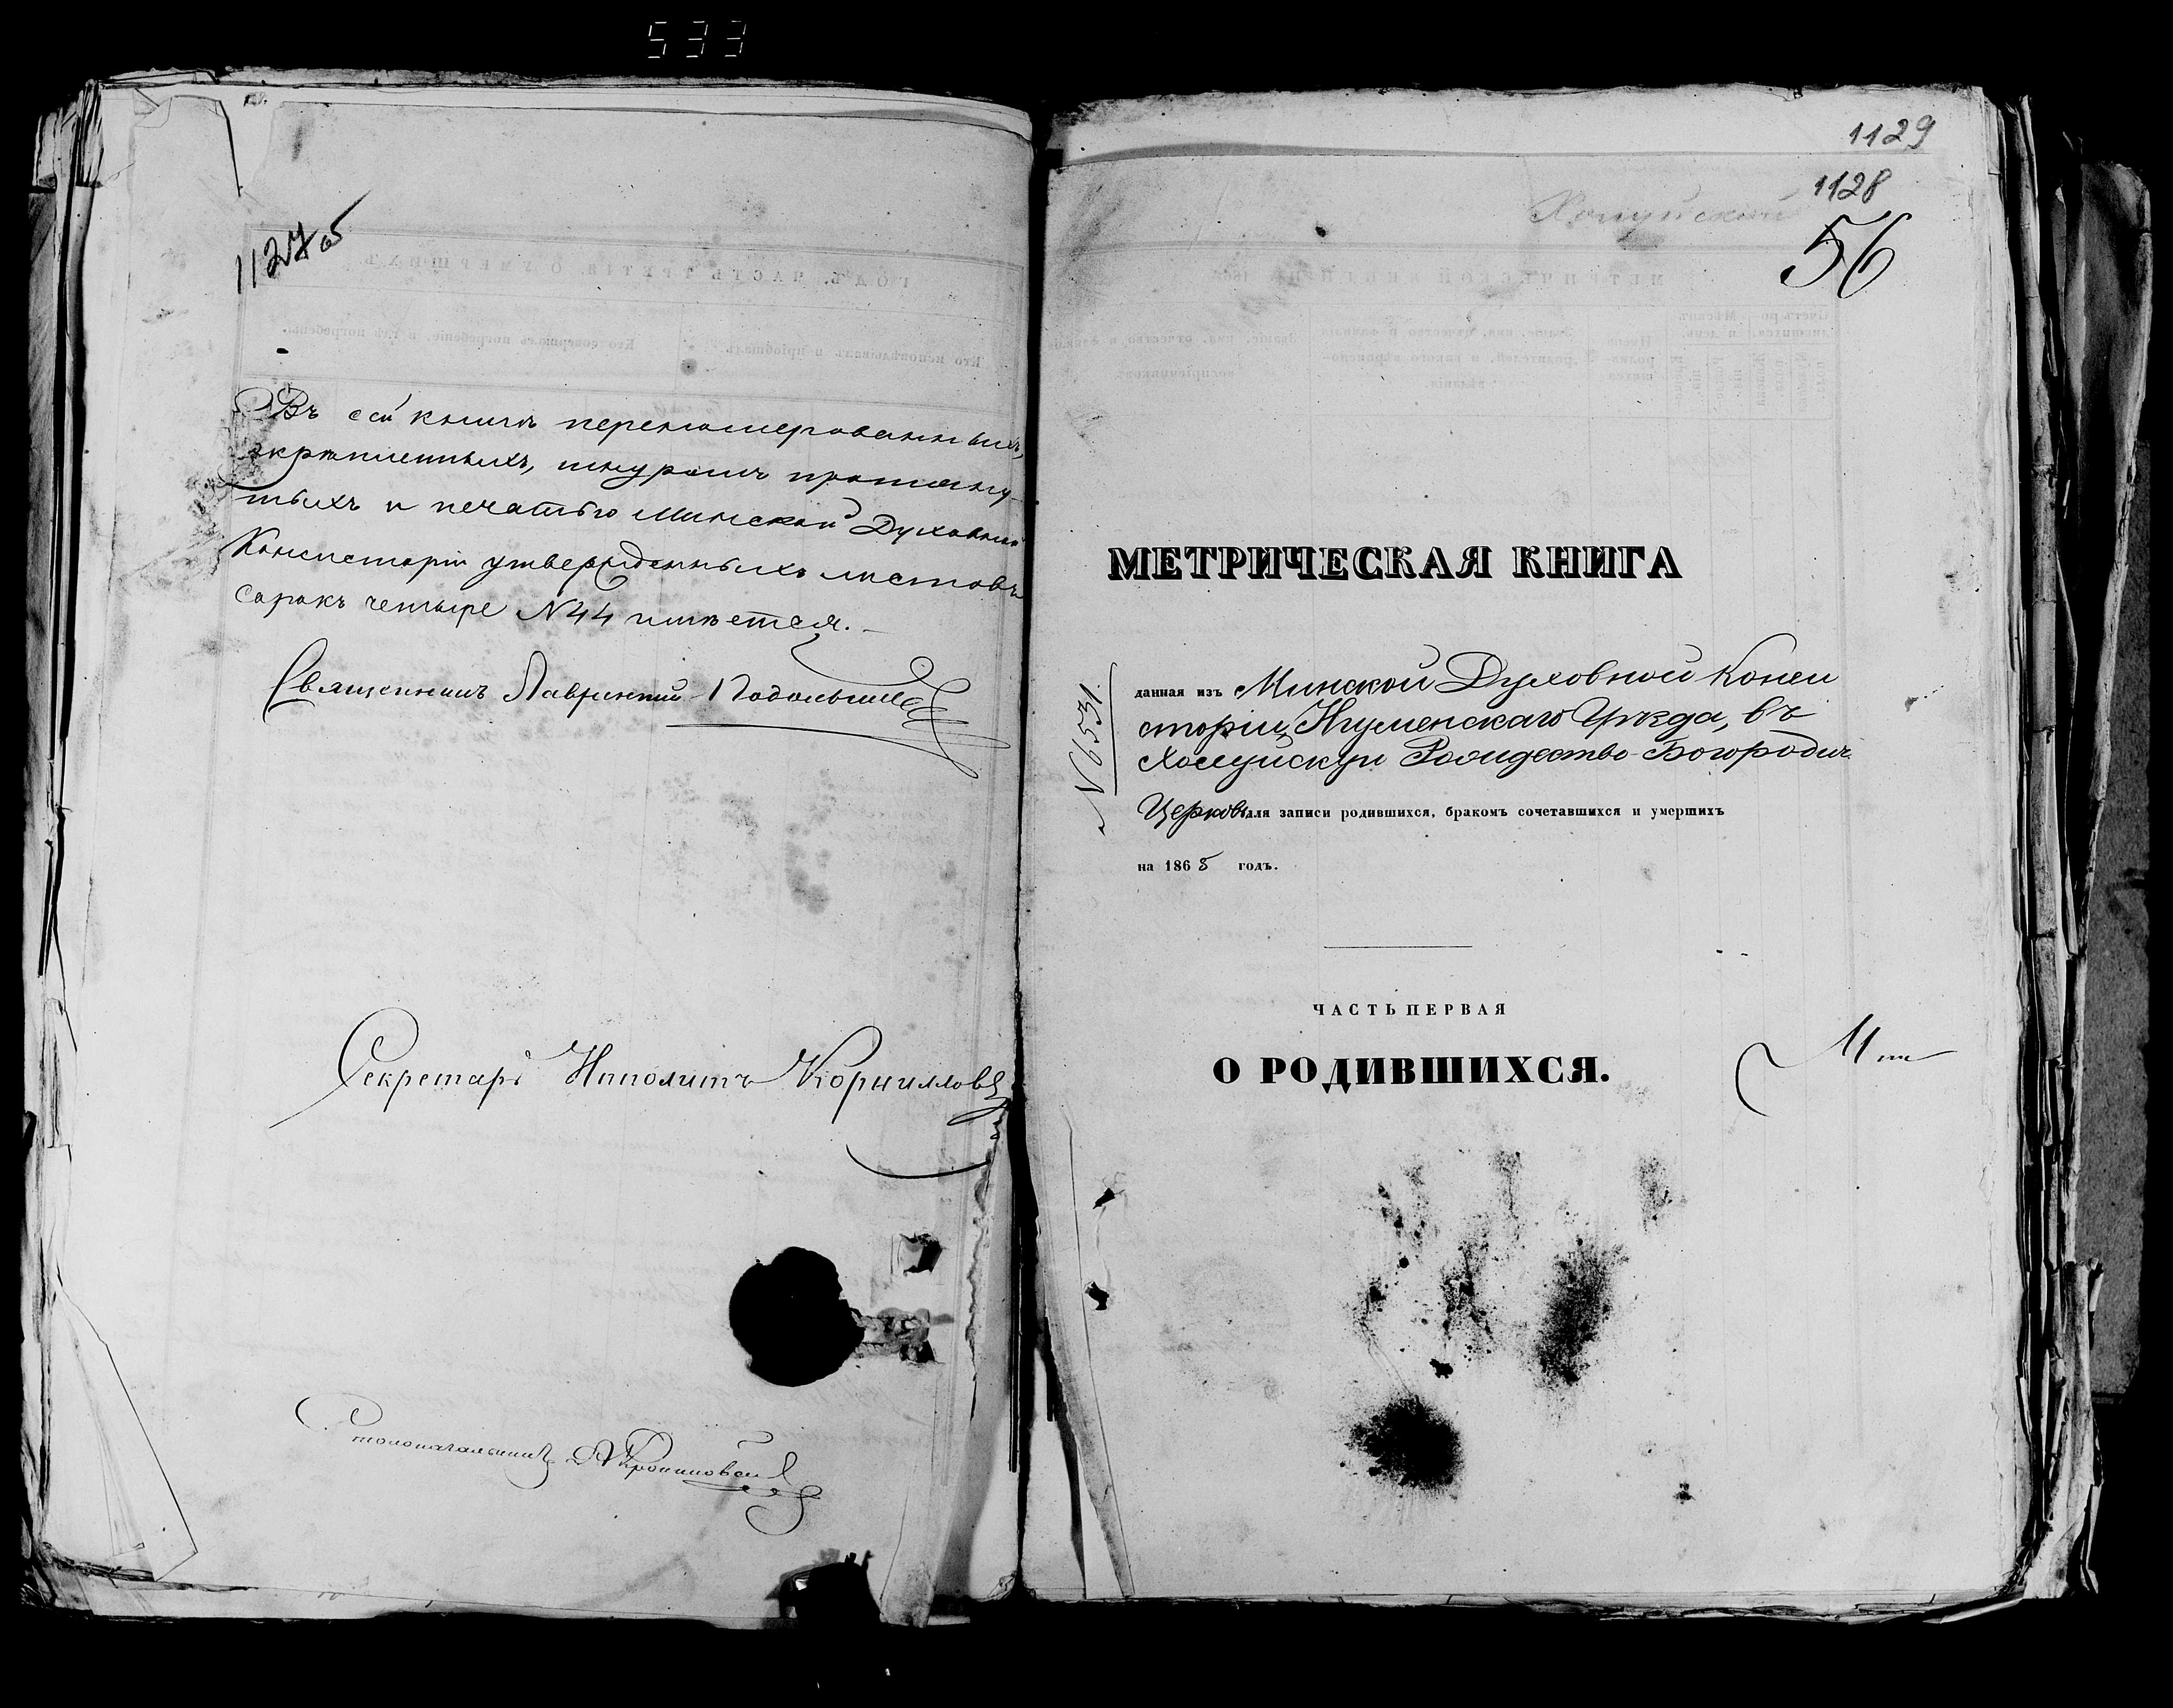 533
1127 об
Въ сей книгѣ перенумерованныхъ,
скрѣпленныхъ, шнуромъ протяну-
тыхъ и печатью Минской Духовной
Консисторіи утвержденныхъ листовъ
сорокъ четыре N 44 имѣется.
Священникъ Лаврентій
Секретарь Ипполитъ Корниловъ
Столоначальникъ
1129
1128
56
Холуйской
МЕТРИЧЕСКАЯ КНИГА
N 6531
данная изъ Минской Духовной Конси
сторіи, Игуменскаго Уѣзда, въ
Холуйскую Рождество-Богородич.
Церковь для записи родившихся, бракомъ сочетавшихся и умершихъ
на 1868 годъ.
ЧАСТЬ ПЕРВАЯ
О РОДИВШИХСЯ.